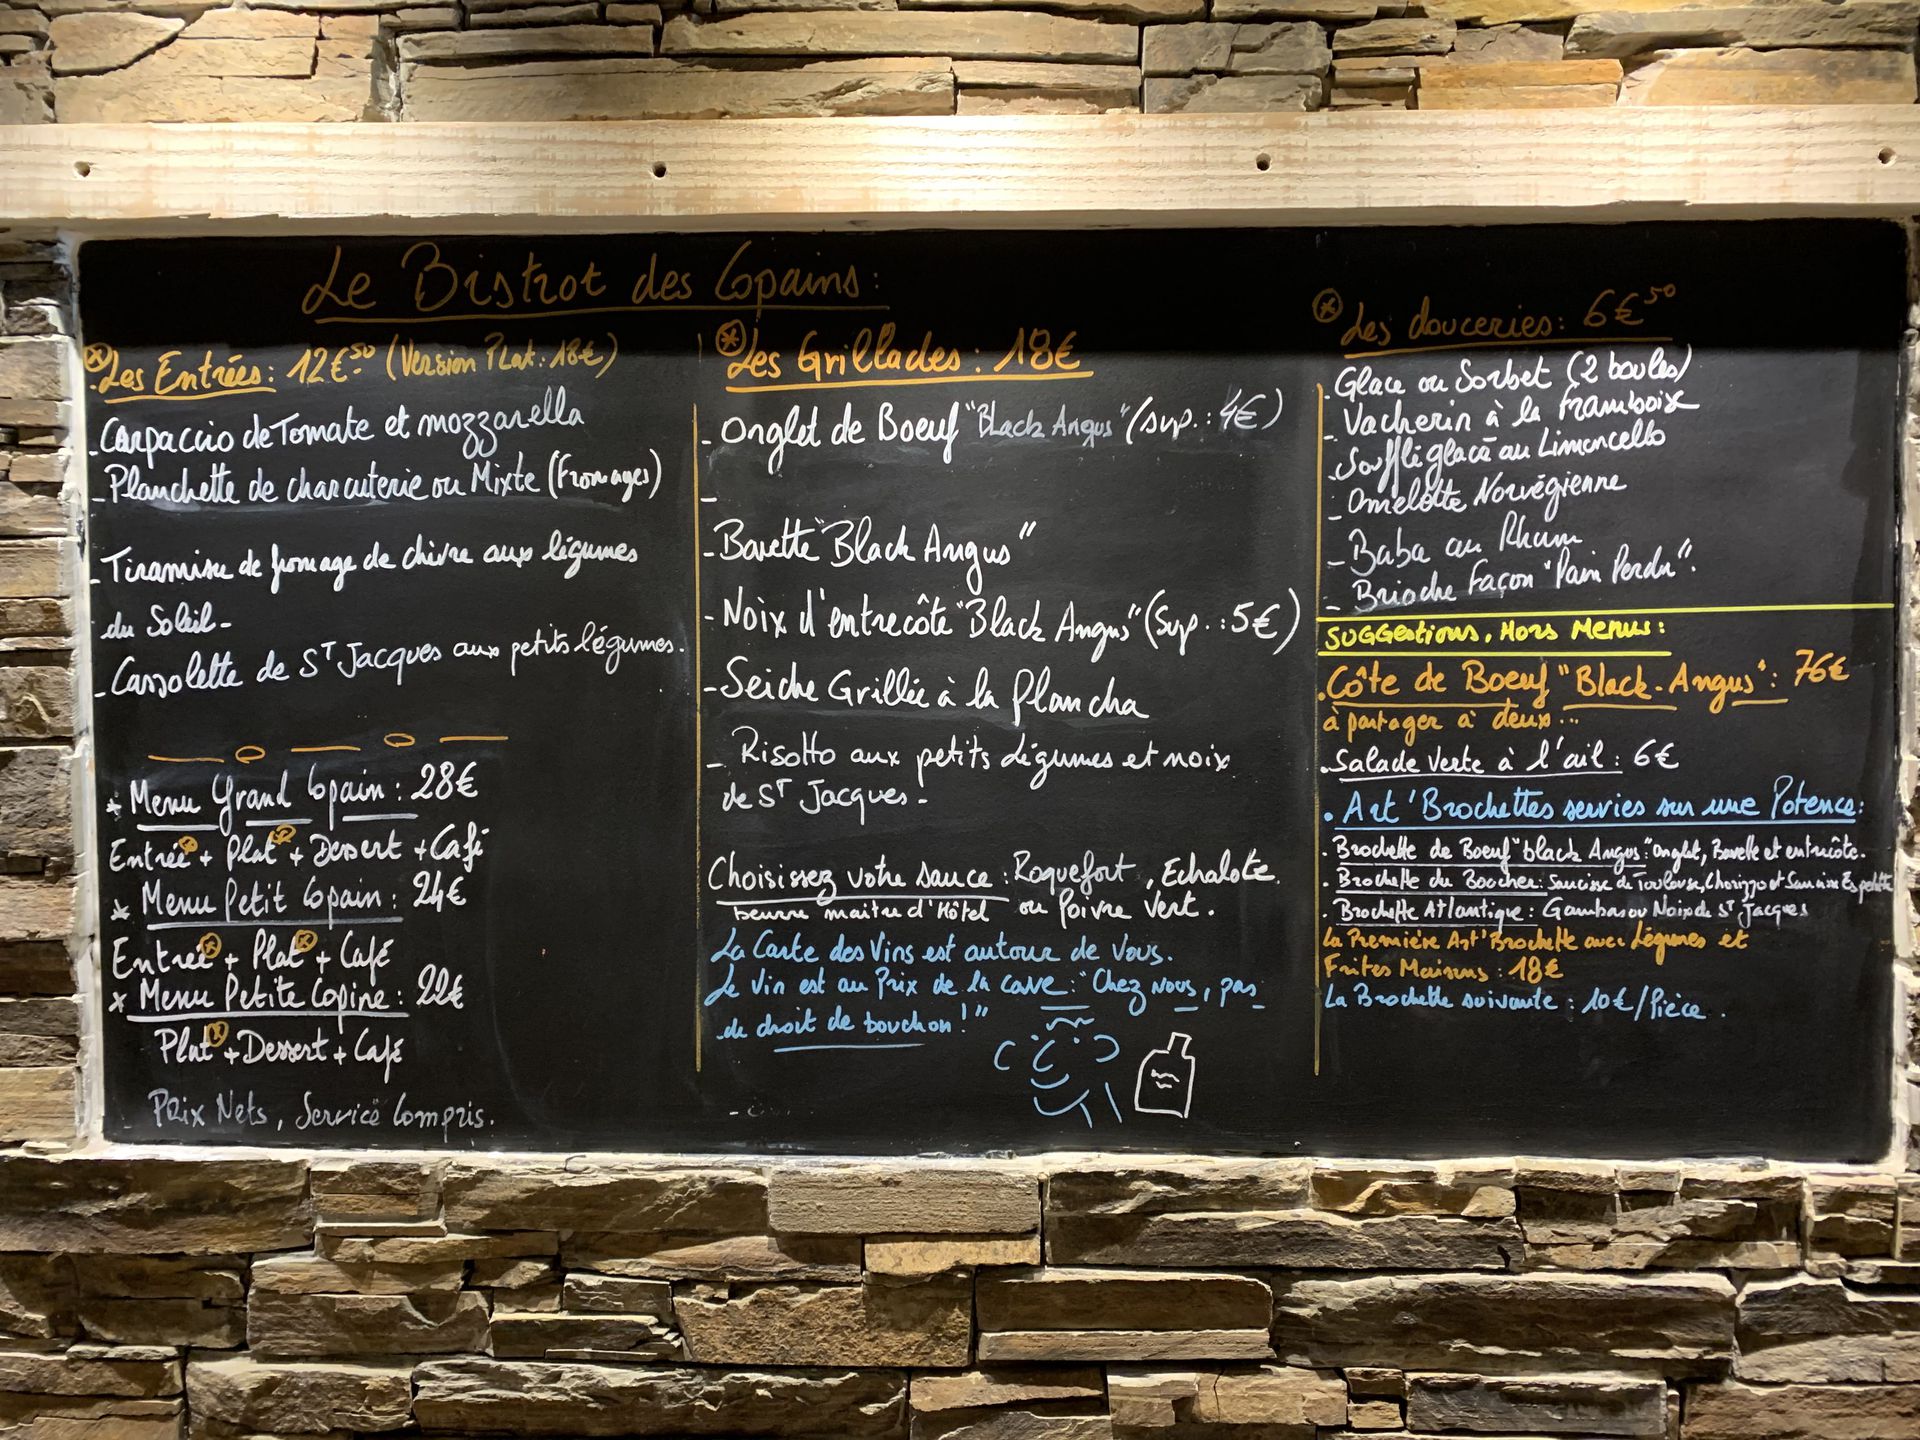 Le Bistrot des Copains:
Les Entrées: 12€50 (Version Plat: 18€)
- Carpaccio de Tomate et mozzarella
- Planchette de charcuterie ou Mixte (Fromages)
- Tiramisu de fromage de chèvre aux légumes
du Soleil-
- Cassolette de ST Jacques aux petits légumes.
* Menu Grand Copain: 28€
Entrée + Plat + Dessert + Café
* Menu Petit Copain: 24€
Entrée + Plat + Café
* Menu Petite Copine: 22€
Plat + Dessert + Café
Prix Nets, Service Compris.
Les Grillades: 18€
- Onglet de Boeuf "Black Angus" (sup.: 4€)
-
- Bavette "Black Angus"
- Noix d'entrecôte "Black Angus" (Sup.: 5€)
- Seiche Grillée à la Plancha
- Risotto aux petits Légumes et noix
de ST Jacques-
Choisissez votre sauce: Roquefort, Echalote,
beurre maitre d'Hôtel ou Poivre Vert.
La Carte des Vins est autour de Vous.
Le Vin est au Prix de la cave: "Chez nous, pas
de droit de bouchon!"
Les douceries: 6€50
- Glace ou Sorbet (2 boules)
- Vacherin à la framboise
- Soufflé glacé au Limoncello
- Omelette Norvégienne
- Baba au Rhum
- Brioche Façon "Pain Perdu".
SUGGestions, Hors Menus:
. Côte de Boeuf "Black-Angus": 76€
à partager à deux...
. Salade verte à l'ail: 6€
. Art'Brochettes servies sur une Potence:
. Brochette de Boeuf "black Angus": onglet, Bavette et entrecôte.
. Brochette du Boocher: Saucisse de Toulouse, Chorizo et Saucisse Espelette
. Brochette Atlantique: Gambas ou Noix de ST Jacques
La Première Art'Brochette avec Légumes et
Frites Maisons: 18€
La Brochette suivante: 10€/Pièce.